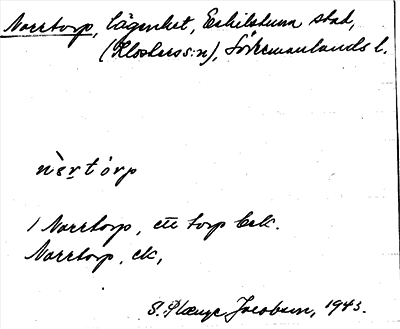 Norrtorp, lägenhet, Eskilstuna stad,
(Klosters s:n), Södermanlands l.
nèr̥tórp
1 Norrtorp, ett torp Eek.
Norrtorp, ek,
S. Plænge Jacobson, 1943.